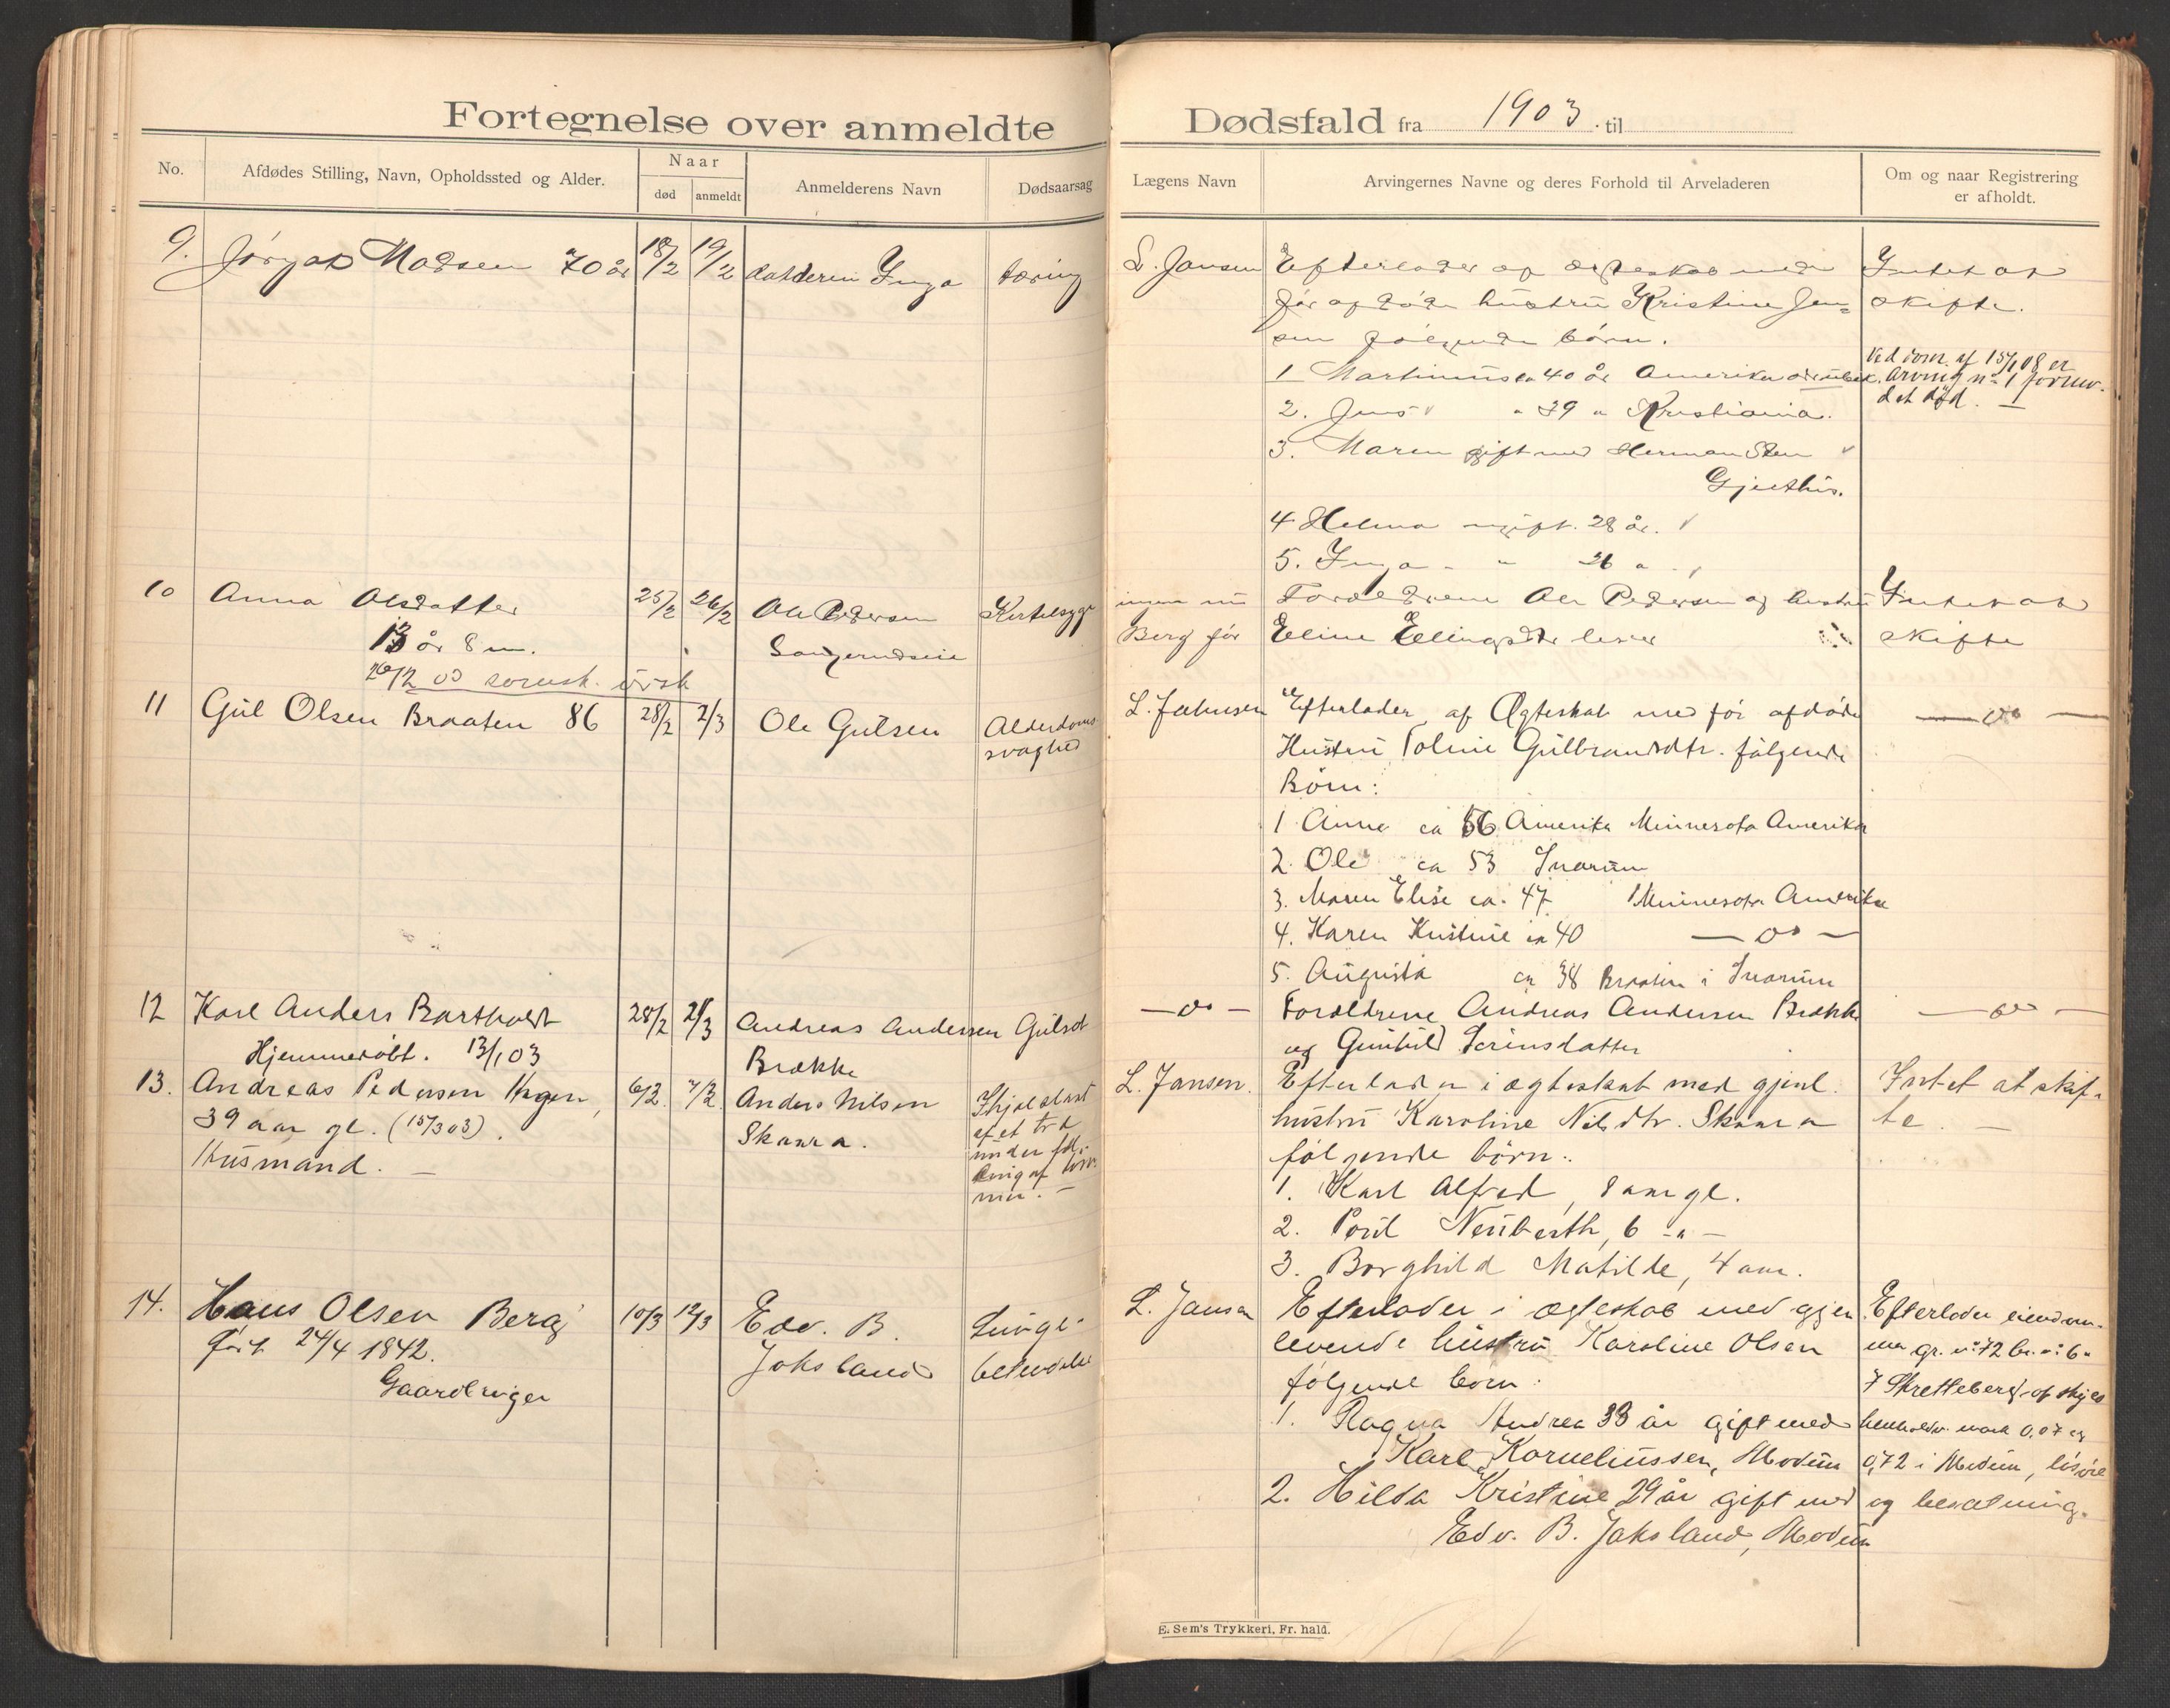 Fortegnelse over anmeldte
Dødsfald fra 1903 til
No.
Afdødes Stilling, Navn, Opholdssted og Alder.
Naar
død
anmeldt
Anmelderens Navn
Dødsaarsag
Lægens Navn
Arvingernes Navne og deres Forhold til Arveladeren
Om og naar Registrering
er afholdt.
9. Madsen 70 år 18/2 19/2 datteren Inga tæring
L. Jansen Efterlader af ægteskab med
før afdøde hustru Kristine Jen=
sen følgende børn.
1 Martinius ca 40 år Amerika
2. Jens " 39 " Kristiania.
3. Maren gift med Herman Steen
Gjeithus.
4 Helma ugift. 28 år.
5. Inga " " 26 "
Intet at
skifte.
Ved dom af 15/1 08 er
arving nº 1 formo-
det død. —
10 Anna Olsdatter 25/2 26/2 Ole Pedersen Kirtelsyge
13 år 8 m.
26/2 03
ingen nu
Berg før
Forældrene Ole Pedersen og hustru
Eline Ellingsdtr lever
Intet at
skifte
11 Gul Olsen Braaten 86 28/2 2/3 Ole Gulsen Alderdoms
svaghed
L. Jahnsen Efterlader af Ægteskab med før afdøde
Hustru Gulbrandsdtr. følgende
Børn:
1 Anne ca 56 Amerika Minnesota Amerika
2. Ole ca 53 Snarum
3. Maren Elise ca. 47 Minnesota Amerika
4. Karen Kristine ca 40 — " —
5. Augusta ca 38 Braaten i Snarum
— " —
12 Karl Anders Barthold 28/2 2/3 Andreas Andersen Gulsot
Hjemmedøbt. 13/1 03 Brække
— " — Forældrene Andreas Andersen Brække
og Gunhild
— " —
13. Andreas Pedersen Hagen, 6/2. 7/2. Anders Nilsen Ihjelslaat
39 aar gl. (15/3 03). Skaara. af et træ
Husmand. — under fæl-
ling af tøm-
mer. —
L. Jansen. Efterlader i ægteskab med gjenl.
hustru Karoline Nilsdtr. Skaara
følgende børn:
1. Karl Alfred, 8 aar gl.
2. Poul Neuberth, 6 - " -
3. Borghild Matilde, 4 aar.
Intet at skif-
te. —
14. Hans Olsen Berg 10/3 12/3 Edv. B. Lunge-
født 24/4 1842. Joksland betendelse
Gaardbruger
L. Jansen Efterlader i ægteskab med gjen
levende hustru Karoline Olsen
følgende børn:
1. Ragna Andrea 33 år gift med
Karl Korneliussen, Modum
2. Hilda Kristine 29 år gift med
Edv. B. Joksland, Modum
Efterlader eiendom-
men gr. nº 72 br. nº 6 "
7 Skretteberg af skyld
henholdsv. mark 0,07 og
0,72 i Modum, løsøre
og besætning.
E. Sem's Trykkeri, Fr. hald.